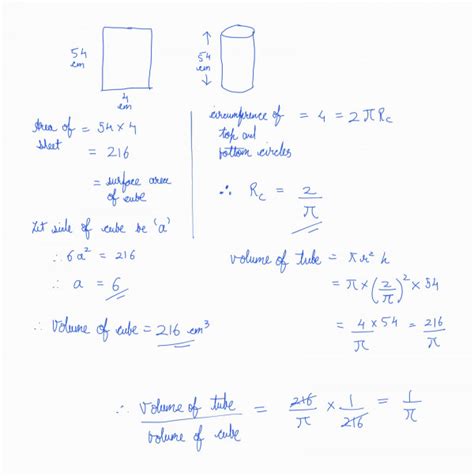 54 cm
4 cm
54 cm
Area of sheet = 54 x 4
= 216
= surface area of cube
Let side of cube be 'a'
∴ 6a² = 216
∴ a = 6
∴ Volume of cube = 216 cm³
circumference of top and bottom circles = 4 = 2πRc
∴ Rc = 2/π
volume of tube = πr²h
= π x (2/π)² x 54
= 4 x 54/π = 216/π
∴ Volume of tube/volume of cube = 216/π x 1/216 = 1/π